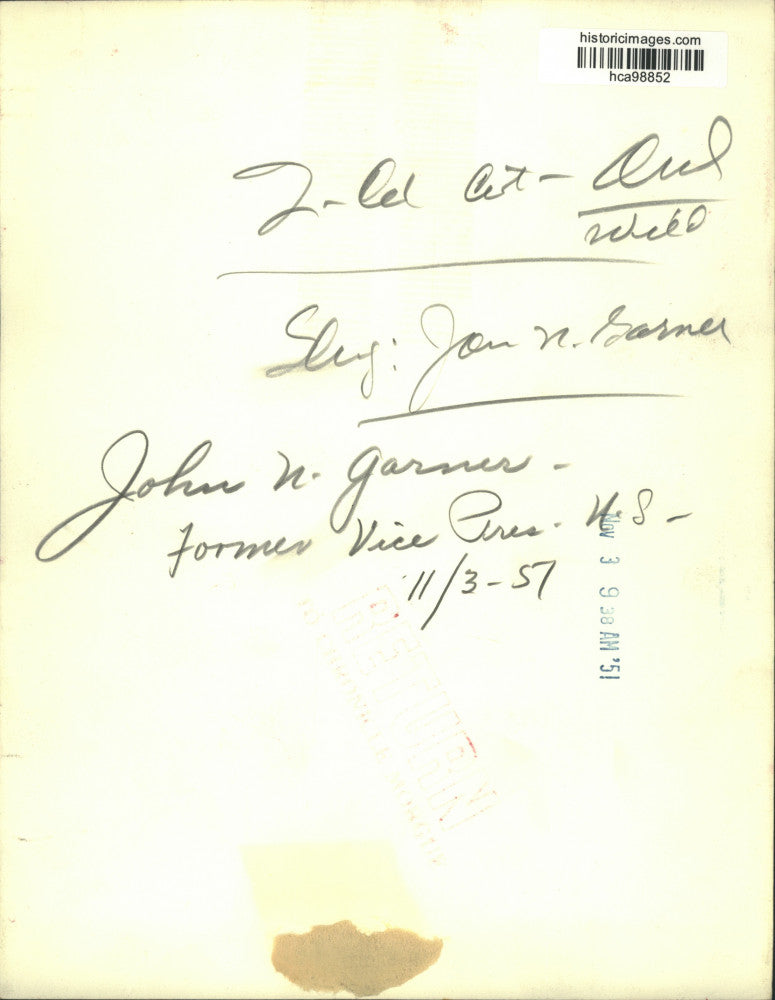 historicimages.com
hca98852
2-Col Cut-
Slug: Jon N. Garner
John N. Garner -
Former Vice Pres. U.S -
11/3-51
Nov 3 9 38 AM '51
RETURN